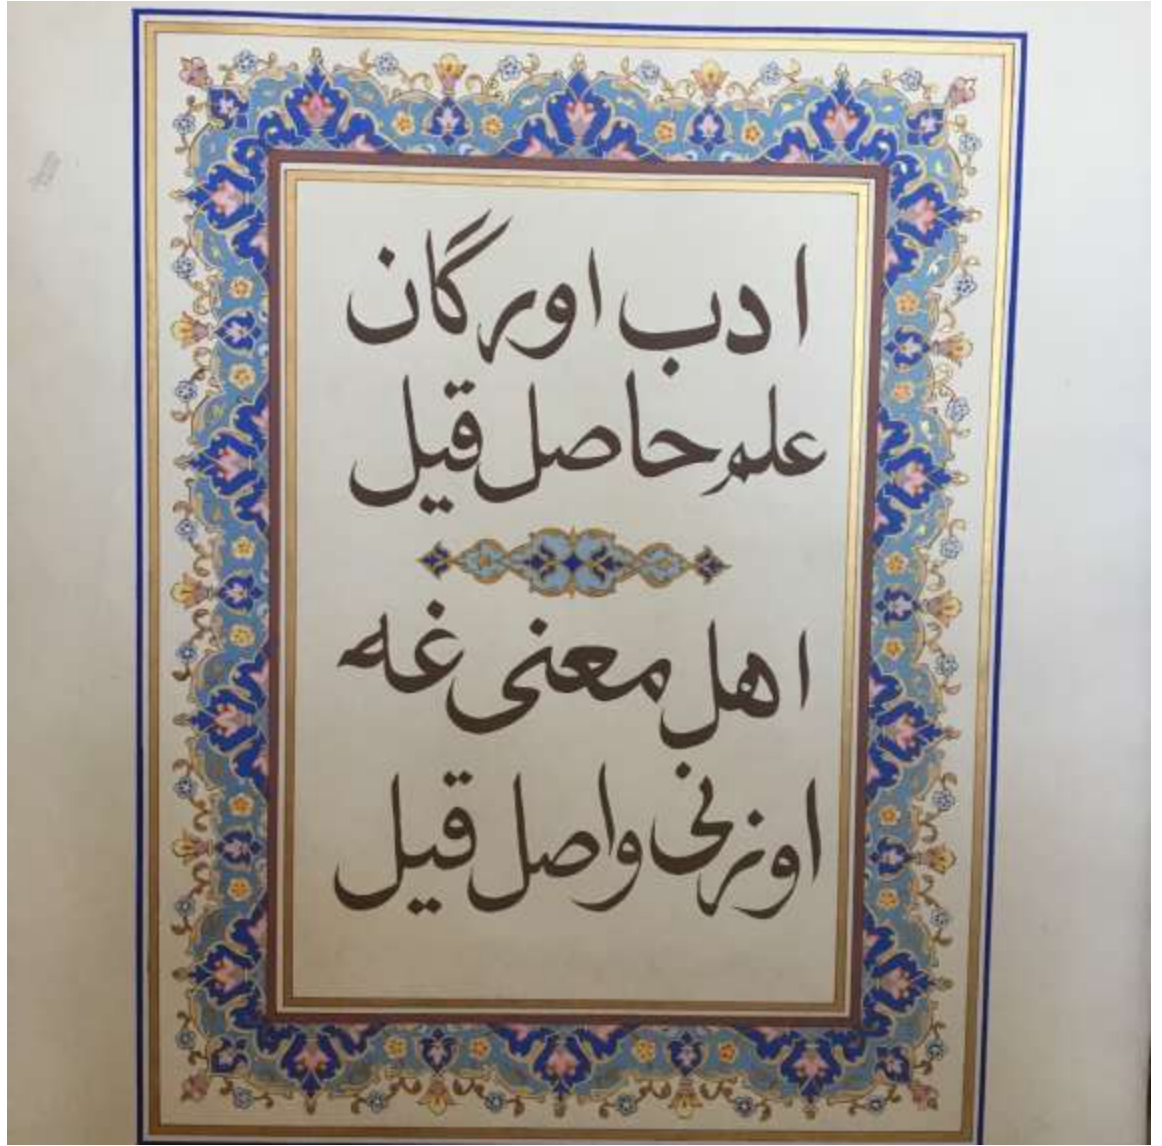 ادب اورگان
علم حاصل قیل
اهل معنی غه
اوزنی واصل قیل